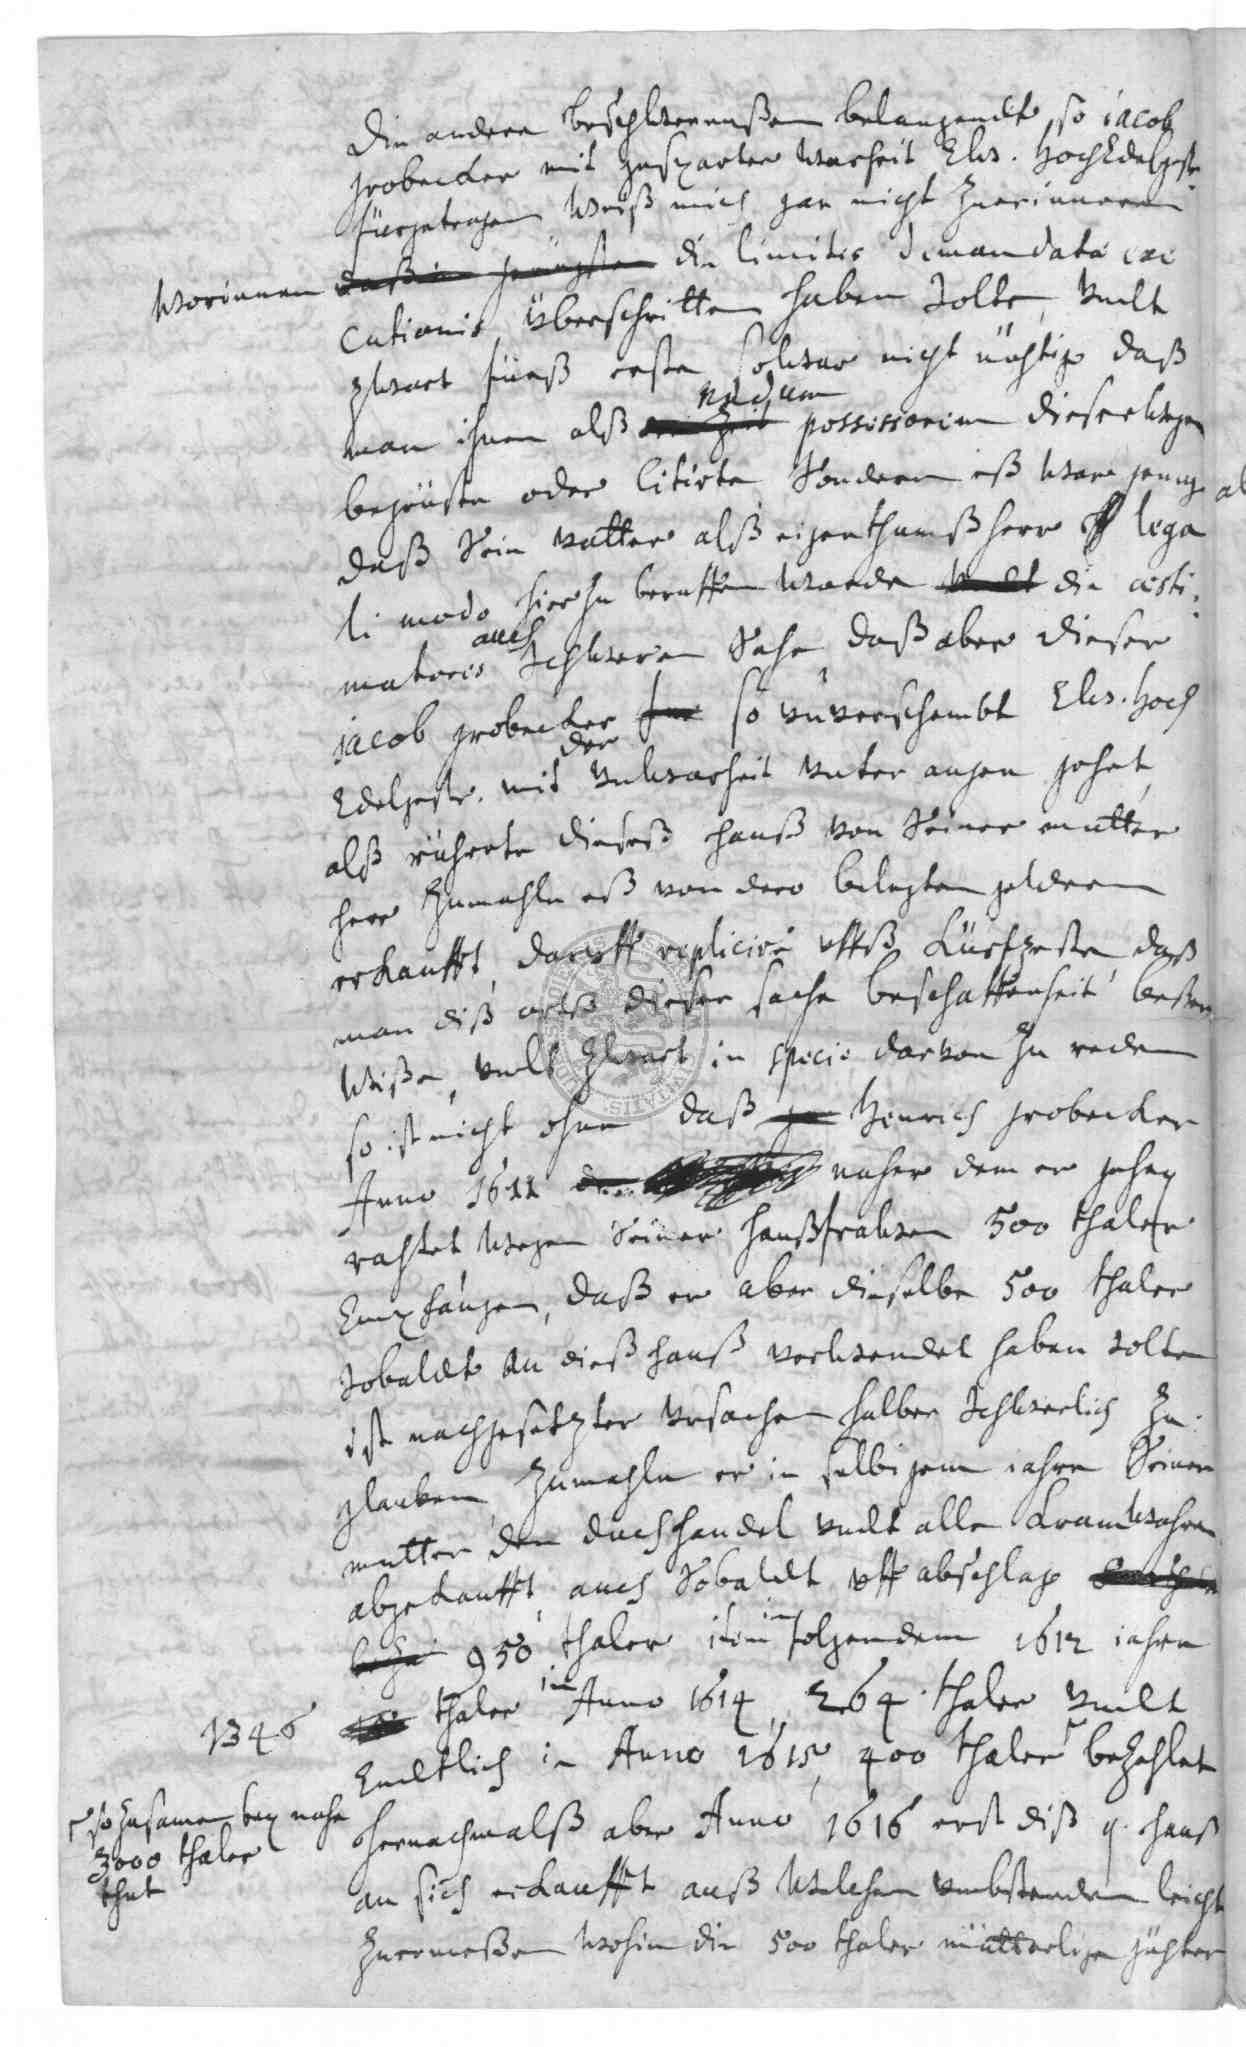 Die andere beschwernußen belangendt, so iacob
grobecker mit gesparter warheit Ehr. HochEdelgestr.
fürgetragen weiß mich gar nicht Zuerinneren
worinnen die limites demandatae exe
cutionis überschritten haben solte, undt
zwart fürß erste so war nicht nöhtig daß
man ihnen alß nudum possessorem dieserwegen
begrüste oder citirte, Sondern eß ware genug
daß Sein vatter alß eigenthumßherr lega
li modo hierzu beruffen worde die aesti
matores auch schweren Sahe, daß aber dieser
iacob grobecker so unverschembt Ehr. Hoch
Edelgestr. mit der unwarheit unter augen gehet,
alß rührete dieseß hauß von Seiner mutter
her Zumahln eß von dero belegten geldern
erkaufft, daruff replicire uffß kürtzeste daß
man diß orts dieser sache beschaffenheit besser
wiße, undt zwart in specie darvon zu reden
so ist nicht ohne daß Henrich grobecker
Anno 1611 naher dem er gehey
rahtet wegen Seiner haußfrawen 500 thaler
Empfangen, daß er aber dieselbe 500 thaler
sobaldt an dieß hauß verwendet haben solte
ist nachgesetzter ursachen halber schwerlich zu
glauben, Zumahln er in selbigem iahre Seiner
mutter den duchhandel undt alle kramwahren
abgekaufft, auch Sobaldt uff abschlag
950 thaler item in folgendem 1612 iahre
1346 thaler in Anno 1614, 264 thaler undt
Endtlich in Anno 1615, 400 thaler bezahlet
so zusamen bey nahe
3000 thaler
thut
hernachmalß aber Anno 1616 erst diß q. hauß
an sich erkaufft auß welchen umbstenden leicht
Zuermeßen wohin die 500 thaler mütterliche gühter